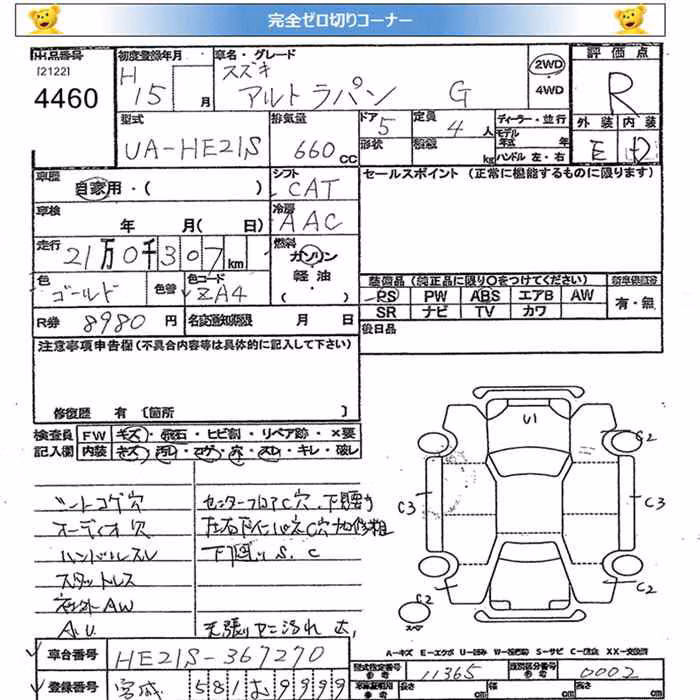 完全ゼロ切りコーナー
出品番号 初度登録年月 車名・グレード 評価点
[2122] H スズキ 2WD
4460 15 月 アルトラパン G 4WD R
型式 排気量 ドア 定員 ディーラー・並行 外装 内装
UA-HE21S 660 CC 5 4 人 モデル年式 年 E D
形状 積載 kg ハンドル 左・右
車歴 シフト セールスポイント (正常に機能するものに限ります)
自家用・( ) CAT
車検 冷房
年 月( 日) AAC
走行 燃料
21万0千307 km ガソリン
軽油
色 色替 色コード ( ) 装備品 (純正品に限り○をつけてください) 新車保証書
ゴールド ZA4 PS PW ABS エアB AW 有・無
SR ナビ TV カワ
R券 8980 円 名変通知期限 月 日 後日品
注意事項申告欄(不具合内容等は具体的に記入して下さい)
修復歴 有 [箇所 ]
検査員 FW キズ・飛石・ヒビ割・リペア跡・×要
記入欄 内装 キズ・汚レ・コゲ・穴・スレ・キレ・破レ
U1
C2
シートコゲ穴 センターフロアC穴、下廻り
C3 C3
オーディオ穴
ハンドルスレ 下廻りS、C
スタットレス
社外AW
C2 C2
A.U 天張りヤニ汚れ大
スペア
A-キズ E-エクボ U-凹み W-波凹み S-サビ C-腐食 XX-交換済
車台番号 HE21S-367270
型式指定番号 11365 類別区分番号 0002
登録番号 宮城 581 む 9999
長さ cm 幅 cm 高さ cm